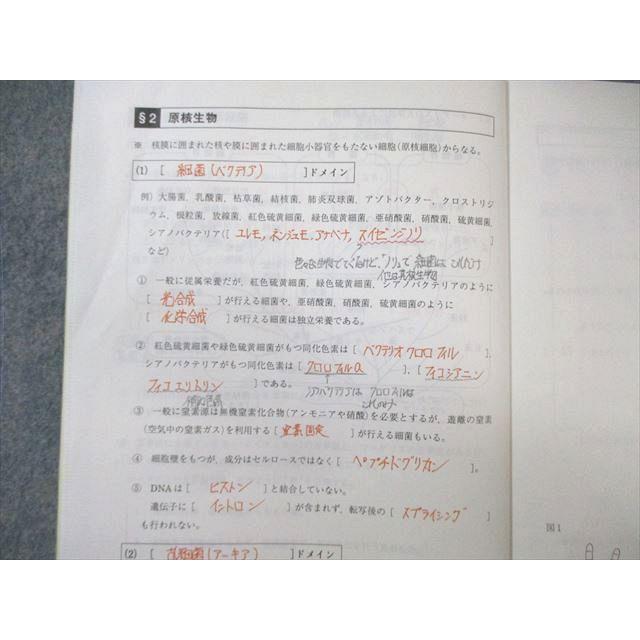 §2 原核生物
※ 核膜に囲まれた核や膜に囲まれた細胞小器官をもたない細胞(原核細胞)からなる。
(1) [ 細菌(バクテリア) ]ドメイン
例) 大腸菌, 乳酸菌, 枯草菌, 結核菌, 肺炎双球菌, アゾトバクター, クロストリジ
ウム, 根粒菌, 放線菌, 紅色硫黄細菌, 緑色硫黄細菌, 亜硝酸菌, 硝酸菌, 硫黄細菌,
シアノバクテリア([ ユレモ, ネンジュモ, アナベナ, スイゼンジノリ ]
など)
色々な生物でてくるけど、「ノリ」で細菌はこれだけ
他は真核生物
① 一般に従属栄養だが, 紅色硫黄細菌, 緑色硫黄細菌, シアノバクテリアのように
[ 光合成 ]が行える細菌や, 亜硝酸菌, 硝酸菌, 硫黄細菌のように
[ 化学合成 ]が行える細菌は独立栄養である。
② 紅色硫黄細菌や緑色硫黄細菌がもつ同化色素は[ バクテリオクロロフィル ],
シアノバクテリアがもつ同化色素は[ クロロフィルa ], [ フィコシアニン
フィコエリトリン ]である。
シアノバクテリアは クロロフィルは
これのみ
③ 一般に窒素源は無機窒素化合物(アンモニアや硝酸)を必要とするが, 遊離の窒素
(空気中の窒素ガス)を利用する[ 窒素固定 ]が行える細菌もいる。
④ 細胞壁をもつが, 成分はセルロースではなく[ ペプチドグリカン ]。
⑤ DNAは[ ヒストン ]と結合していない。
遺伝子に[ イントロン ]が含まれず, 転写後の[ スプライシング ]
も行われない。
(2) [ 古細菌(アーキア) ]ドメイン
図1